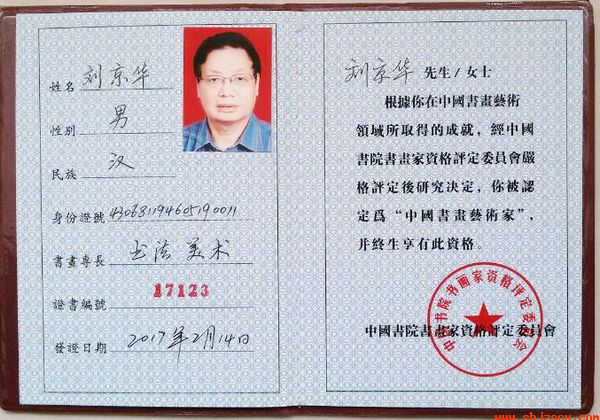 姓名 刘京华
性别 男
民族 汉
身份證號 430681194605190011
書畫專長 书法 美术
證書編號 17123
發證日期 2017年2月14日
刘京华 先生/女士
根據你在中國書畫藝術
領域所取得的成就，經中國
書院書畫家資格評定委員會嚴
格評定後研究決定，你被認
定爲“中國書畫藝術家”，
并終生享有此資格。
中國書院書畫家資格評定委員會
中国书院书画家资格评定委员会